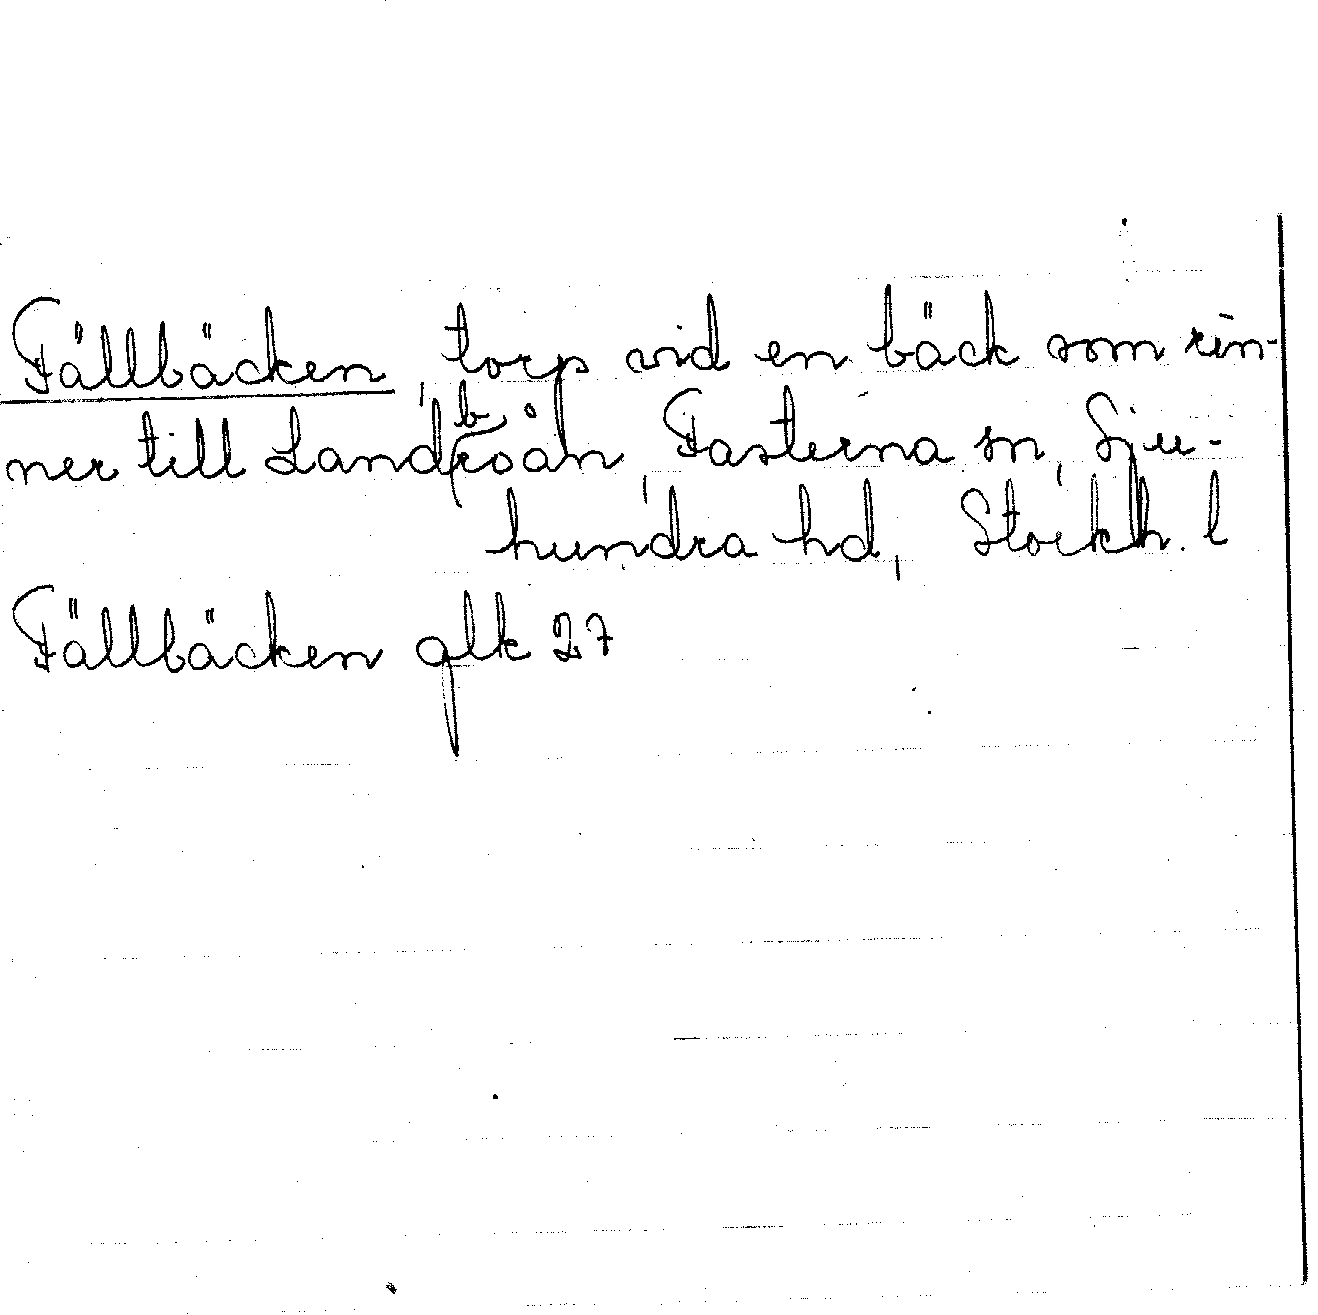 Fällbäcken, torp vid en bäck som rin-
ner till Landbroån, Fasterna sn, Sju-
hundra hd, Stockh. l
Fällbäcken glk 27